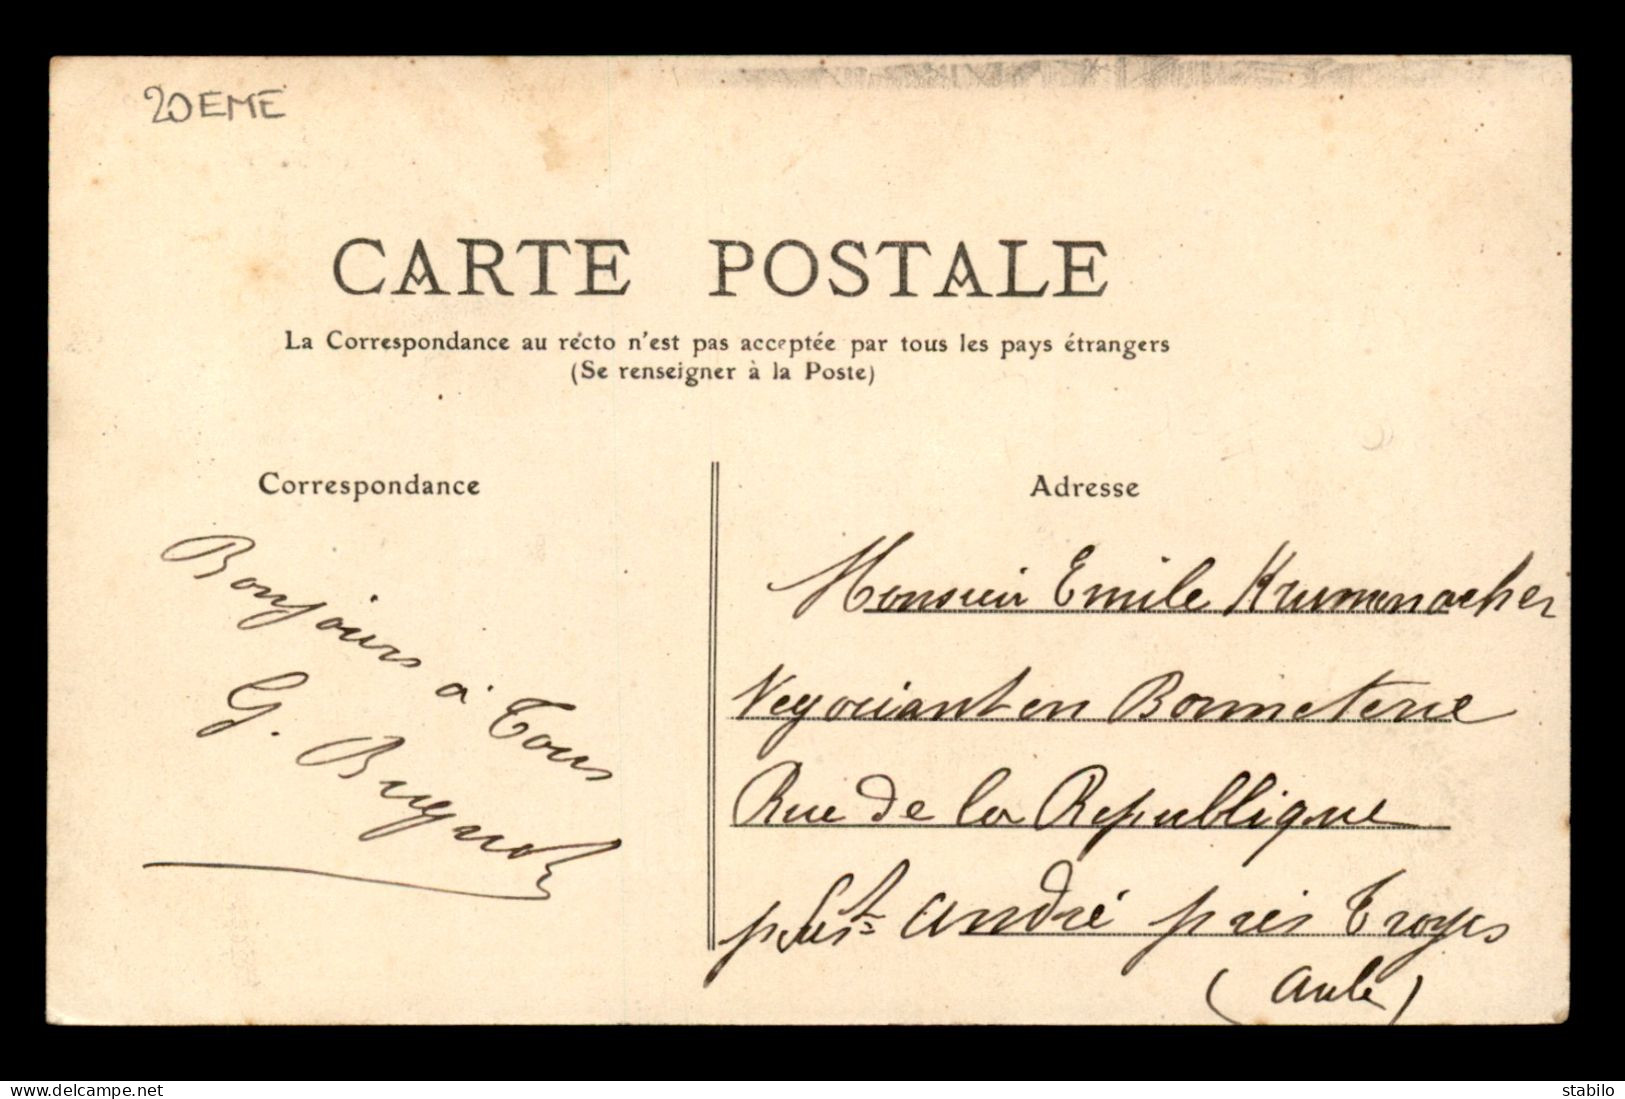 20EME
CARTE POSTALE
La Correspondance au recto n'est pas acceptée par tous les pays étrangers
(Se renseigner à la Poste)
Correspondance
Adresse
Bonjours à Tous
G. Bugnot
Monsieur Emile Krummnacher
Negociant en Bonneterie
Rue de la Republique
St André près Troyes
(Aube)
www.delcampe.net
stabilo